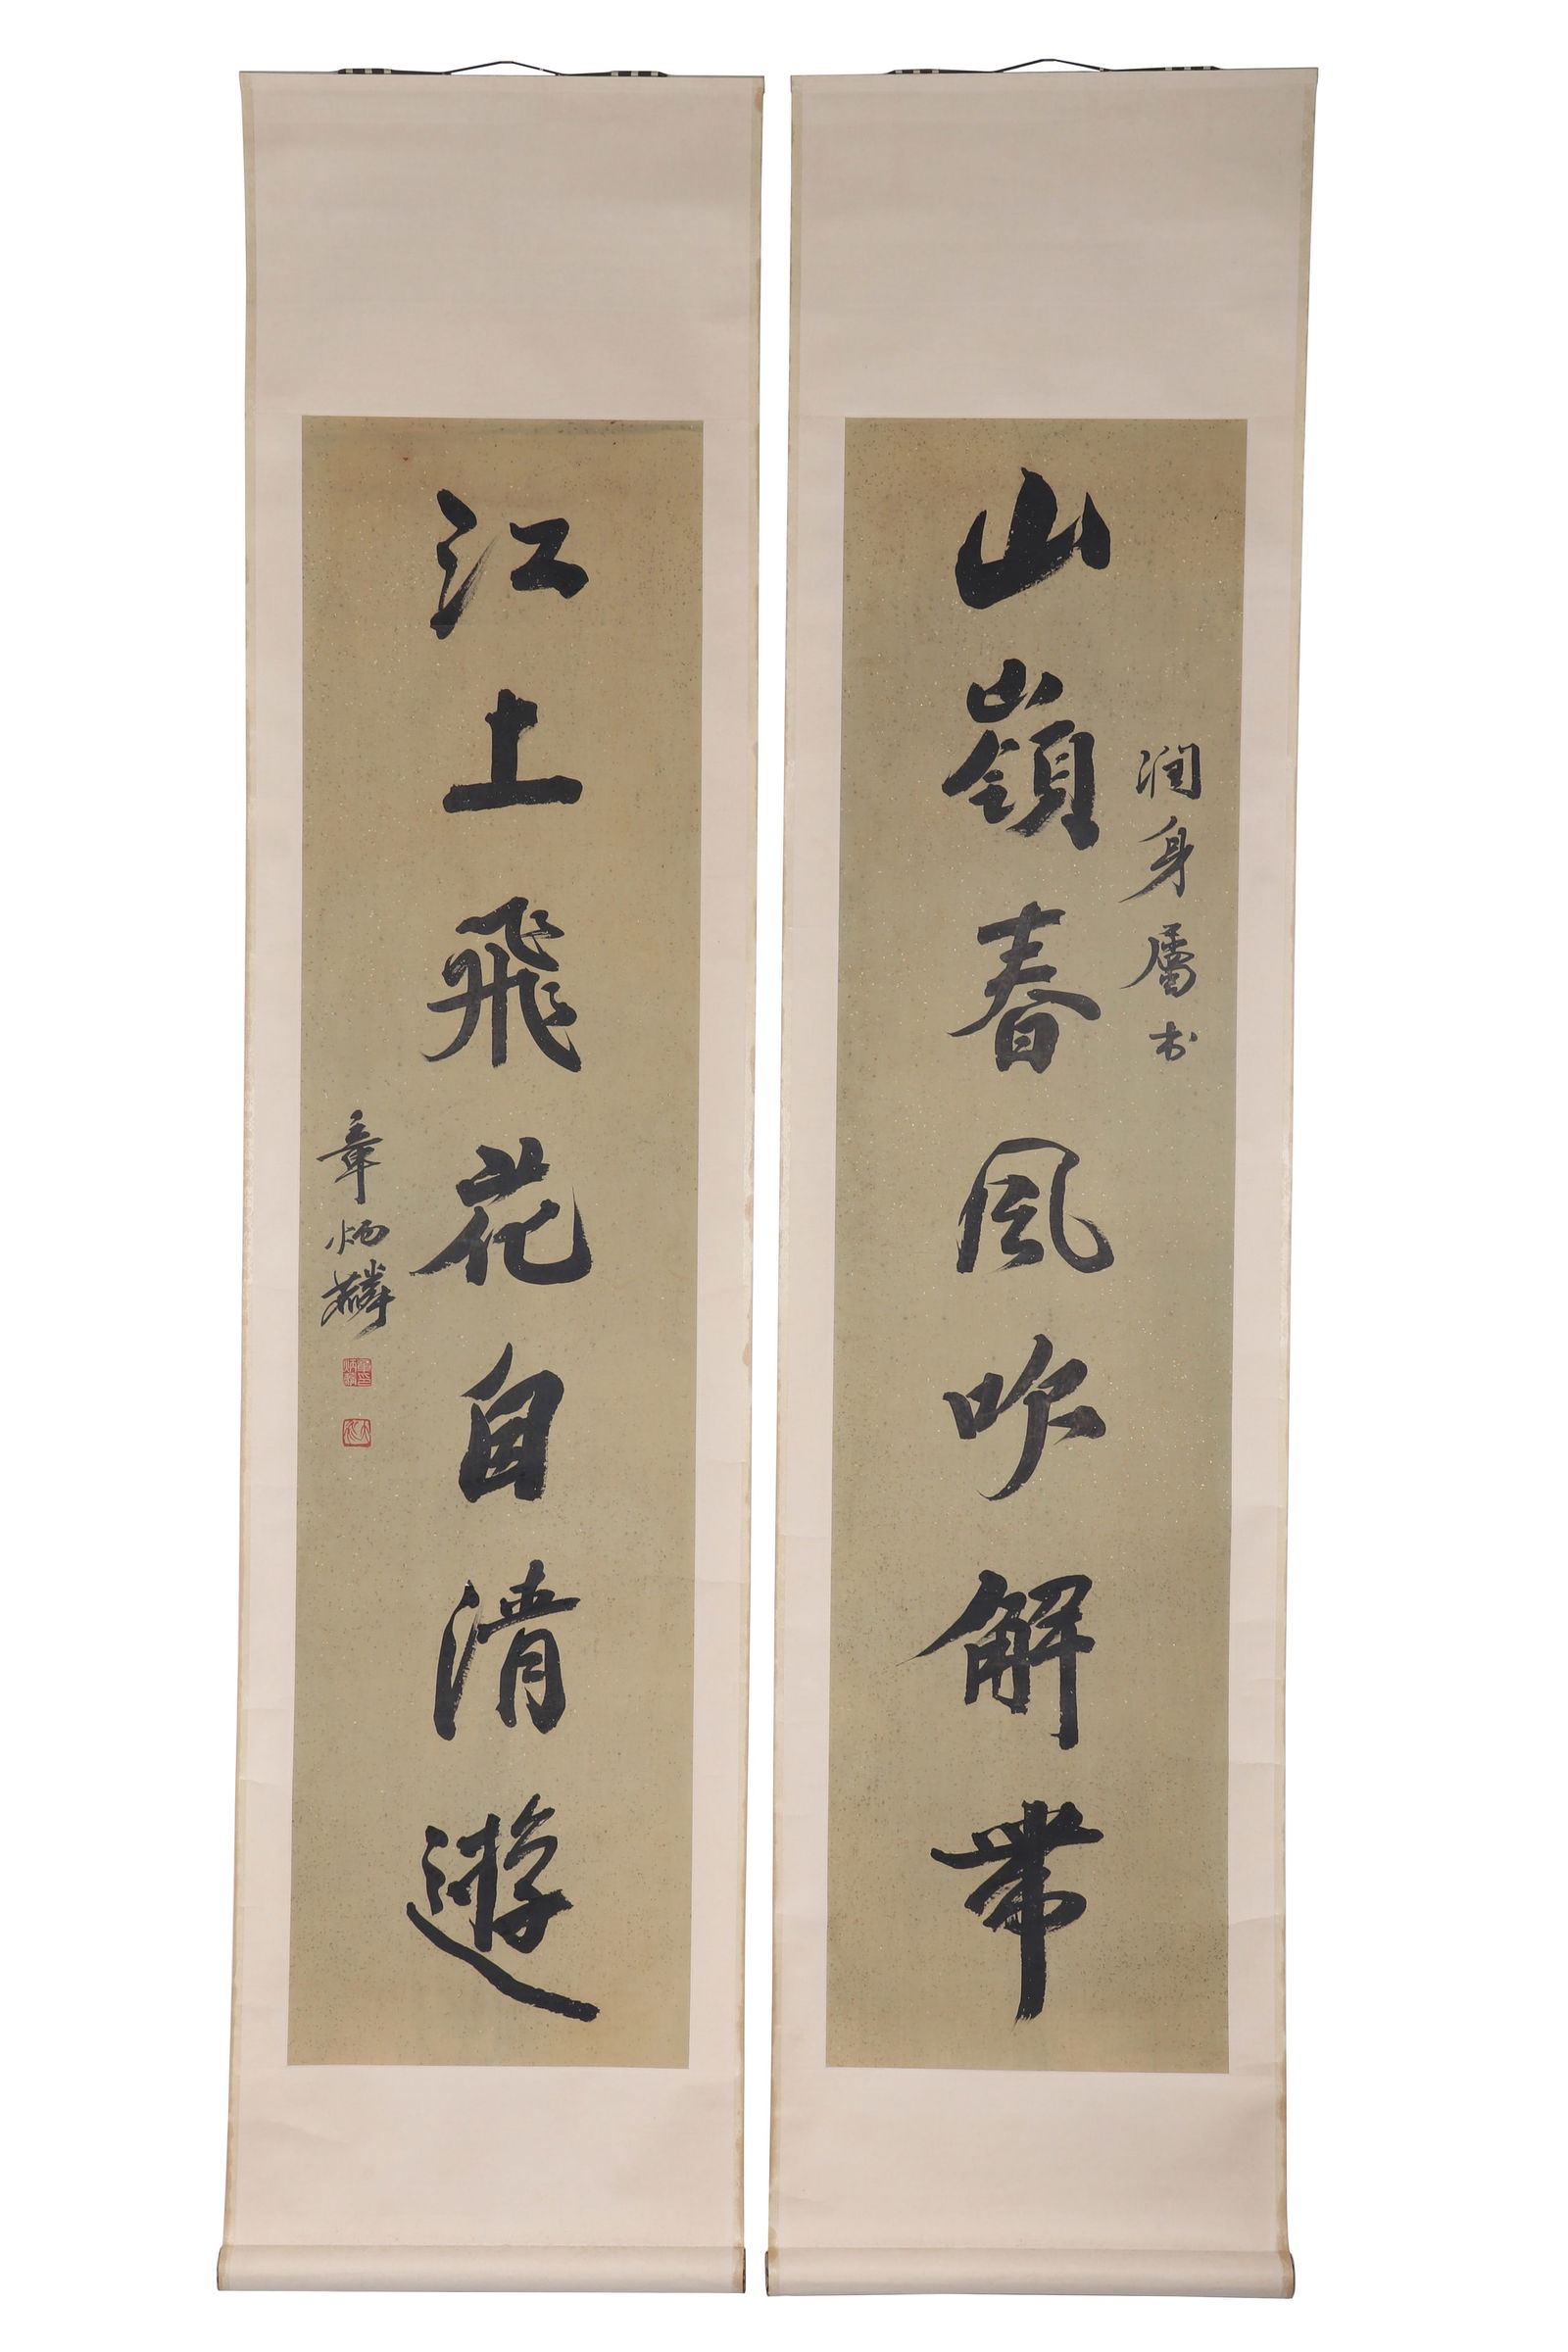 山嶺春風吹解帶
潤身屬书
江上飛花自清遊
章炳麟